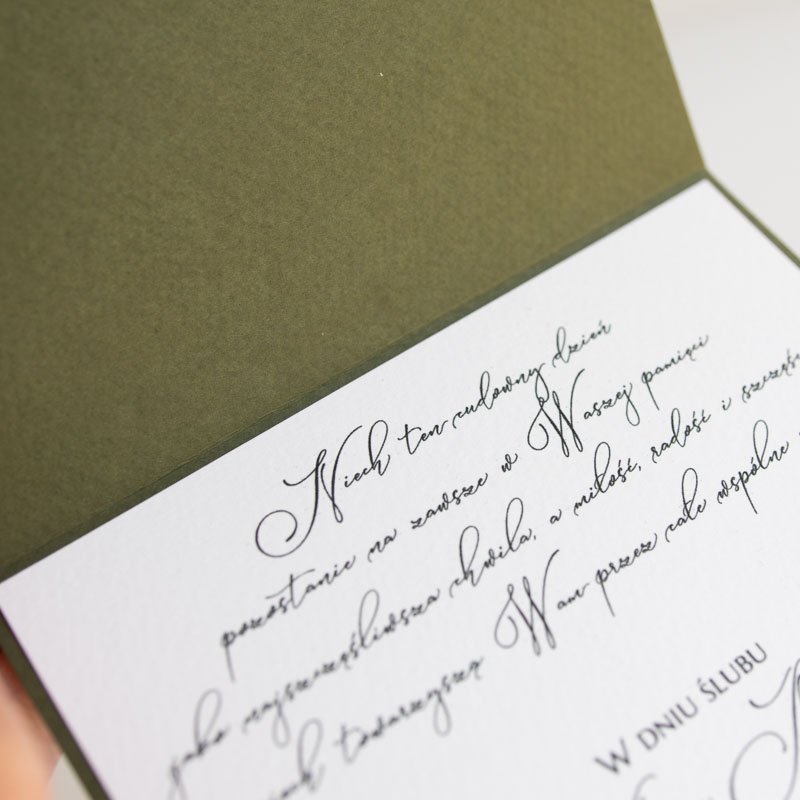 Niech ten cudowny dzień
pozostanie na zawsze w Waszej pamięci
jako najszczęśliwsza chwila, a miłość, radość i szczęśc
towarzyszą Wam przez całe wspólne
W DNIU ŚLUBU